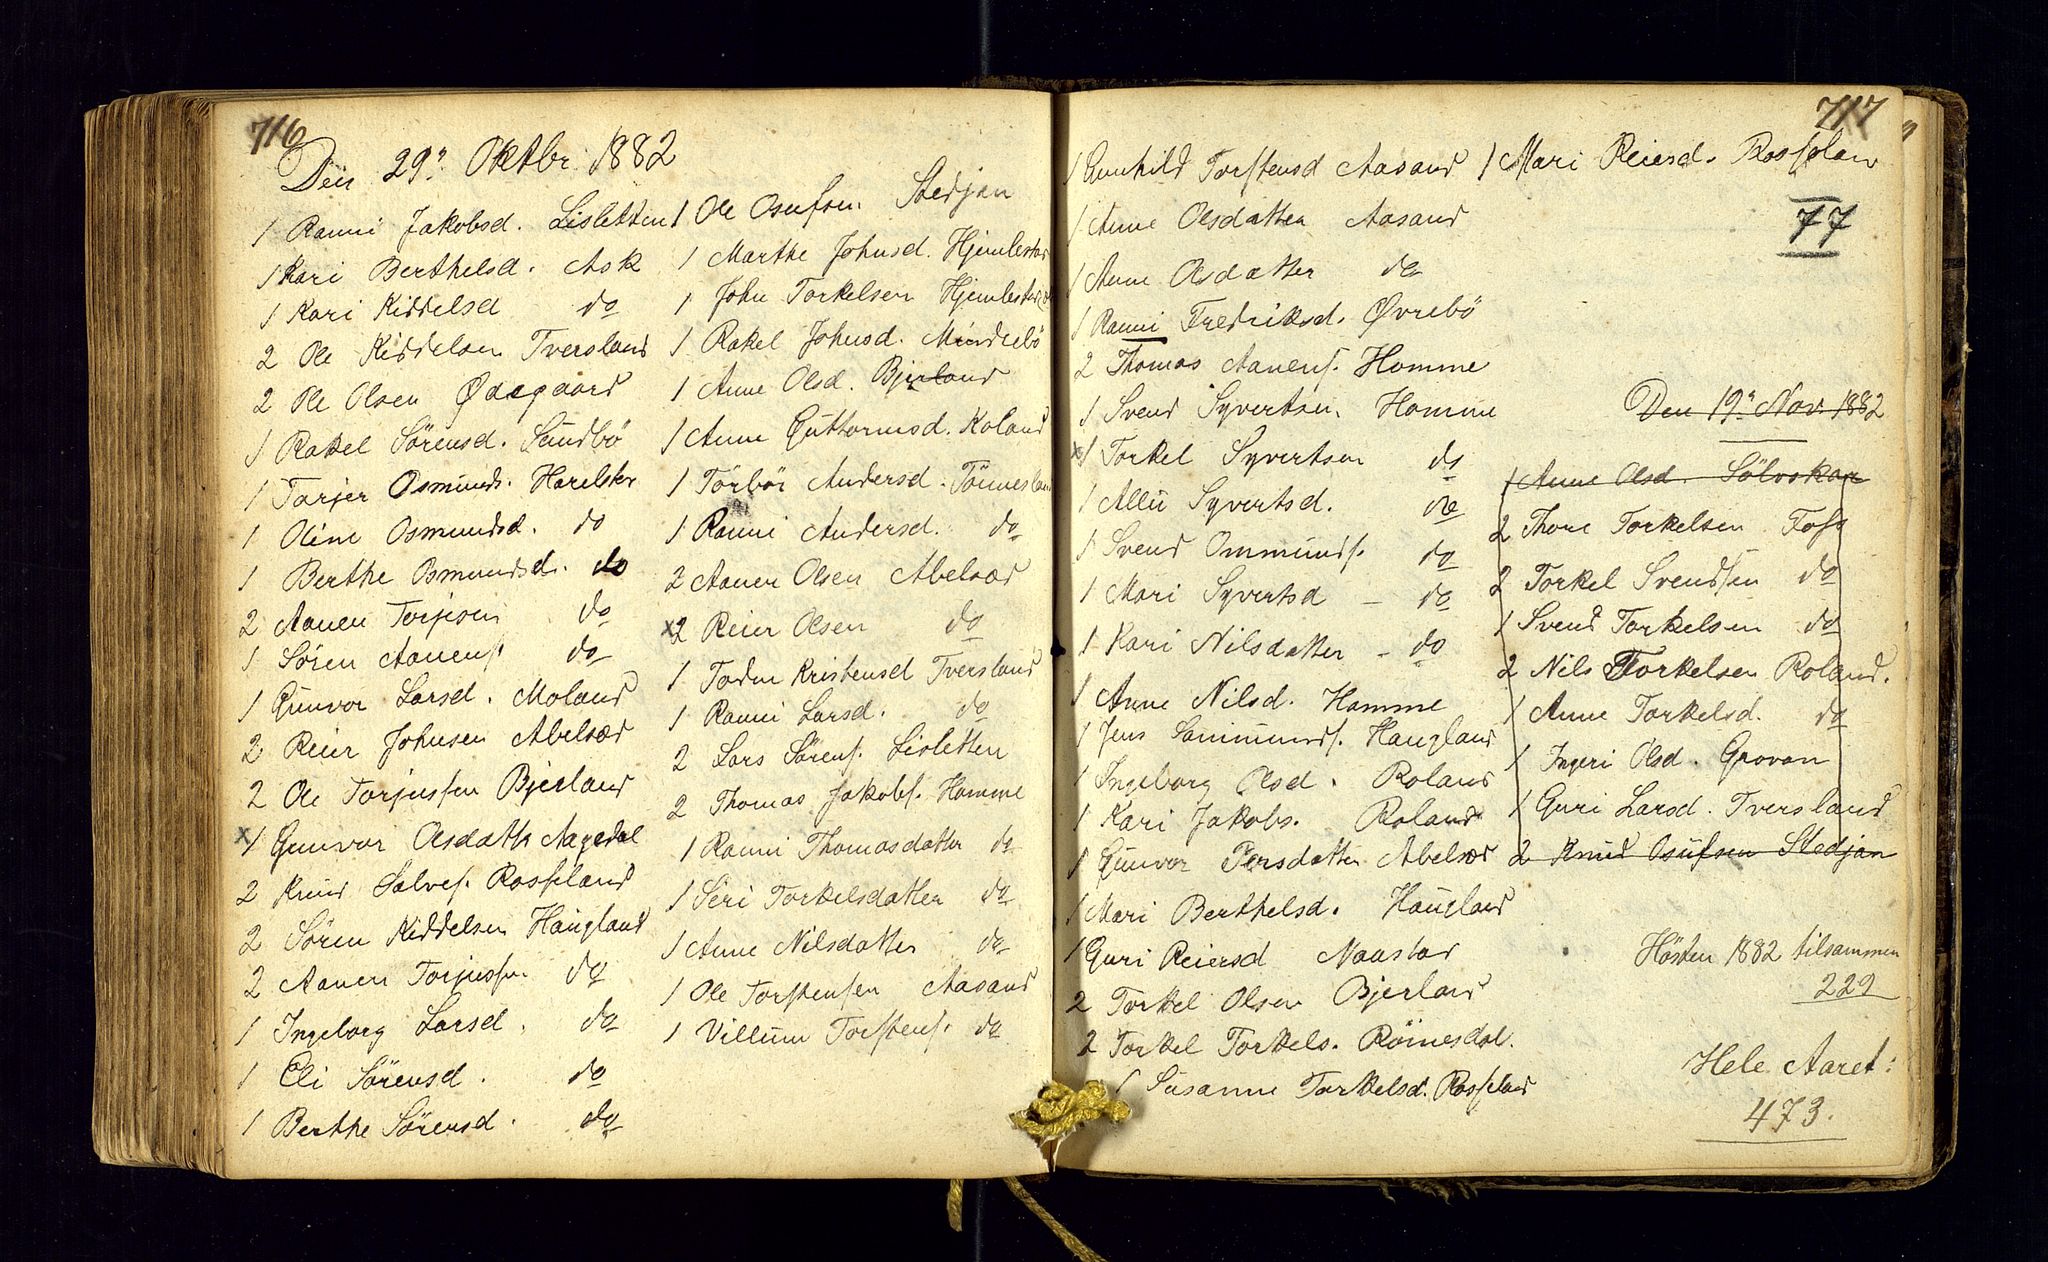 716
Den 29de Oktbr 1882
1 Ranni Jakobsd. Lisletten
1 Kari Berthelsd. Ask
1 Kari Kiddelsd do
2 Ole Kiddelsen Tversland
2 Ole Olsen Ødegaard
1 Rakel Sörensd. Sundbö
1 Tarjer Osmunds. Harelster
1 Oline Osmundsd. do
1 Berthe Osmundsd. do
2 Aanen Torjesen do
1 Sören Aanens. do
1 Gunvor Larsd. Moland
2 Reier Johnsen Abelsæd
2 Ole Torjussen Bjerland
x 1 Gunvor Olsdatter Aagedal
2 Knud Salves. Rosseland
2 Sören Kiddelsen Haugland
2 Aanen Torjussen do
1 Ingeborg Larsd. do
1 Eli Sörensd. do
1 Berthe Sörensd. do
1 Ole Osufsen Stedjan
1 Marthe Johnsd. Hjemlestad
1 John Torkelsen Hjemlestad
1 Rakel Johnsd. Mindrebö
1 Anne Olsd. Bjerland
1 Anne Guttormsd. Roland
1 Törbör Andersd. Tönnesland
1 Ranni Andersd. do
2 Aanen Olsen Abelsæd
x2 Reier Olsen do
1 Kristensd Tversland
1 Ranni Larsd. do
2 Lars Sörens. Lisletten
2 Thomas Jakobs. Homme
1 Ranni Thomasdatter do
1 Seri Torkelsdatter do
1 Anne Nilsdatter do
1 Ole Torstensen Aasand
1 Villum Torstens. do
717
1 Gunhild Torstensd Aasand
1 Anne Olsdatter Aasand
1 Anne Olsdatter do
1 Ranni Fredriksd. Øvrebö
2 Thomas Aanens. Homme
1 Svend Syvertsen Homme
x1 Torkel Syvertsen do
1 Allu Syvertsd. do
1 Svend Ommunds. do
1 Mari Syvertsd – do
1 Kari Nilsdatter – do
1 Anne Nilsd. Homme
1 Jens Sammunds. Haugland
1 Ingeborg Olsd. Roland
1 Kari Jakobs. Roland
1 Gunvor Persdatter Abelsæd
1 Mari Berthelsd. Haugland
1 Guri Reiersd Naastad
2 Torkel Olsen Bjerland
2 Torkel Torkels. Röinesdal.
1 Susanne Torkelsd. Rosseland
1 Mari Reiersd. Rosseland
77
Den 19de Nov. 1882
1 Anne Olsd. Sölvskar
2 Thore Torkelsen Foss
2 Torkel Svendsen do
1 Svend Torkelsen do
2 Nils Torkelsen Roland.
1 Anne Torkelsd. do
1 Ingeri Olsd. Grovan
1 Guri Larsd. Tversland
2 Knud Osufsen Stedjan
Hösten 1882 tilsammen
229
Hele Aaret:
473.